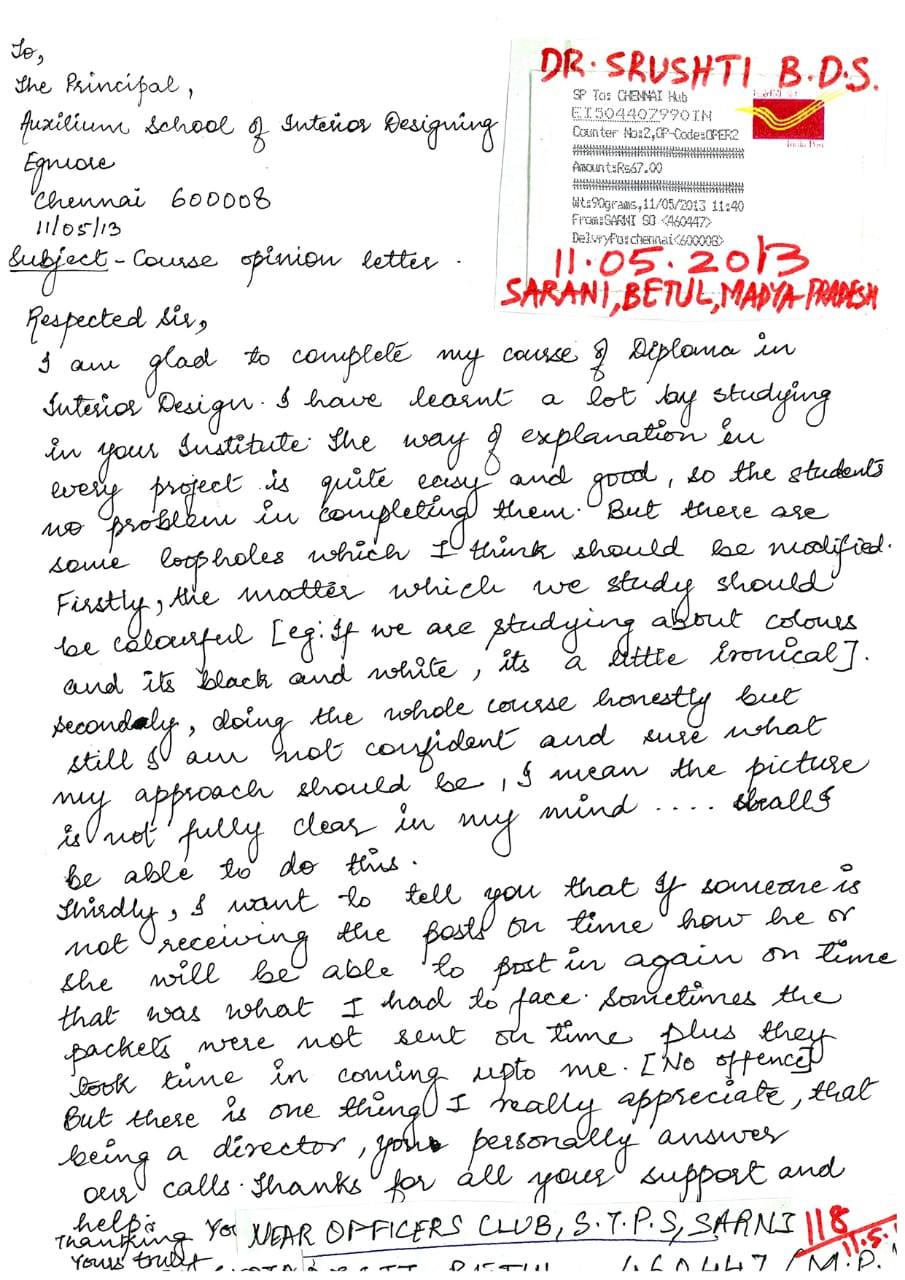 To,
The Principal,
Auxilium School of Interior Designing
Egmore
Chennai 600008
11/05/13
Subject - Course opinion letter.
DR. SRUSHTI B.D.S.
SP To: CHENNAI Hub
EI504407990IN
Counter No:2,OP-Code:OPER2
Amount:Rs67.00
Wt:90grams,11/05/2013 11:40
From:SARNI SO <460447>
DelvryPo:chennai<600008>
India Post
11.05.2013
SARANI, BETUL, MADYA PRADESH
Respected Sir,
I am glad to complete my course of Diploma in
Interior Design. I have learnt a lot by studying
in your Institute. The way of explanation in
every project is quite easy and good, so the students
no problem in completing them. But there are
some loopholes which I think should be modified.
Firstly, the matter which we study should
be colourful [eg: If we are studying about colours
and its black and white, its a little ironical].
secondaly, doing the whole course honestly but
still I am not confident and sure what
my approach should be, I mean the picture
is not fully clear in my mind .... shall I
be able to do this.
Thirdly, I want to tell you that If someone is
not receiving the posts on time how he or
she will be able to post in again on time
that was what I had to face. Sometimes the
packets were not sent on time plus they
took time in coming upto me. [No offence]
But there is one thing I really appreciate, that
being a director, you personally answer
our calls. Thanks for all your support and
help.
Thanking You
Yours truly
NEAR OFFICERS CLUB, S.T.P.S, SARNI
118
11.5.
BETUL 460447 (M.P.